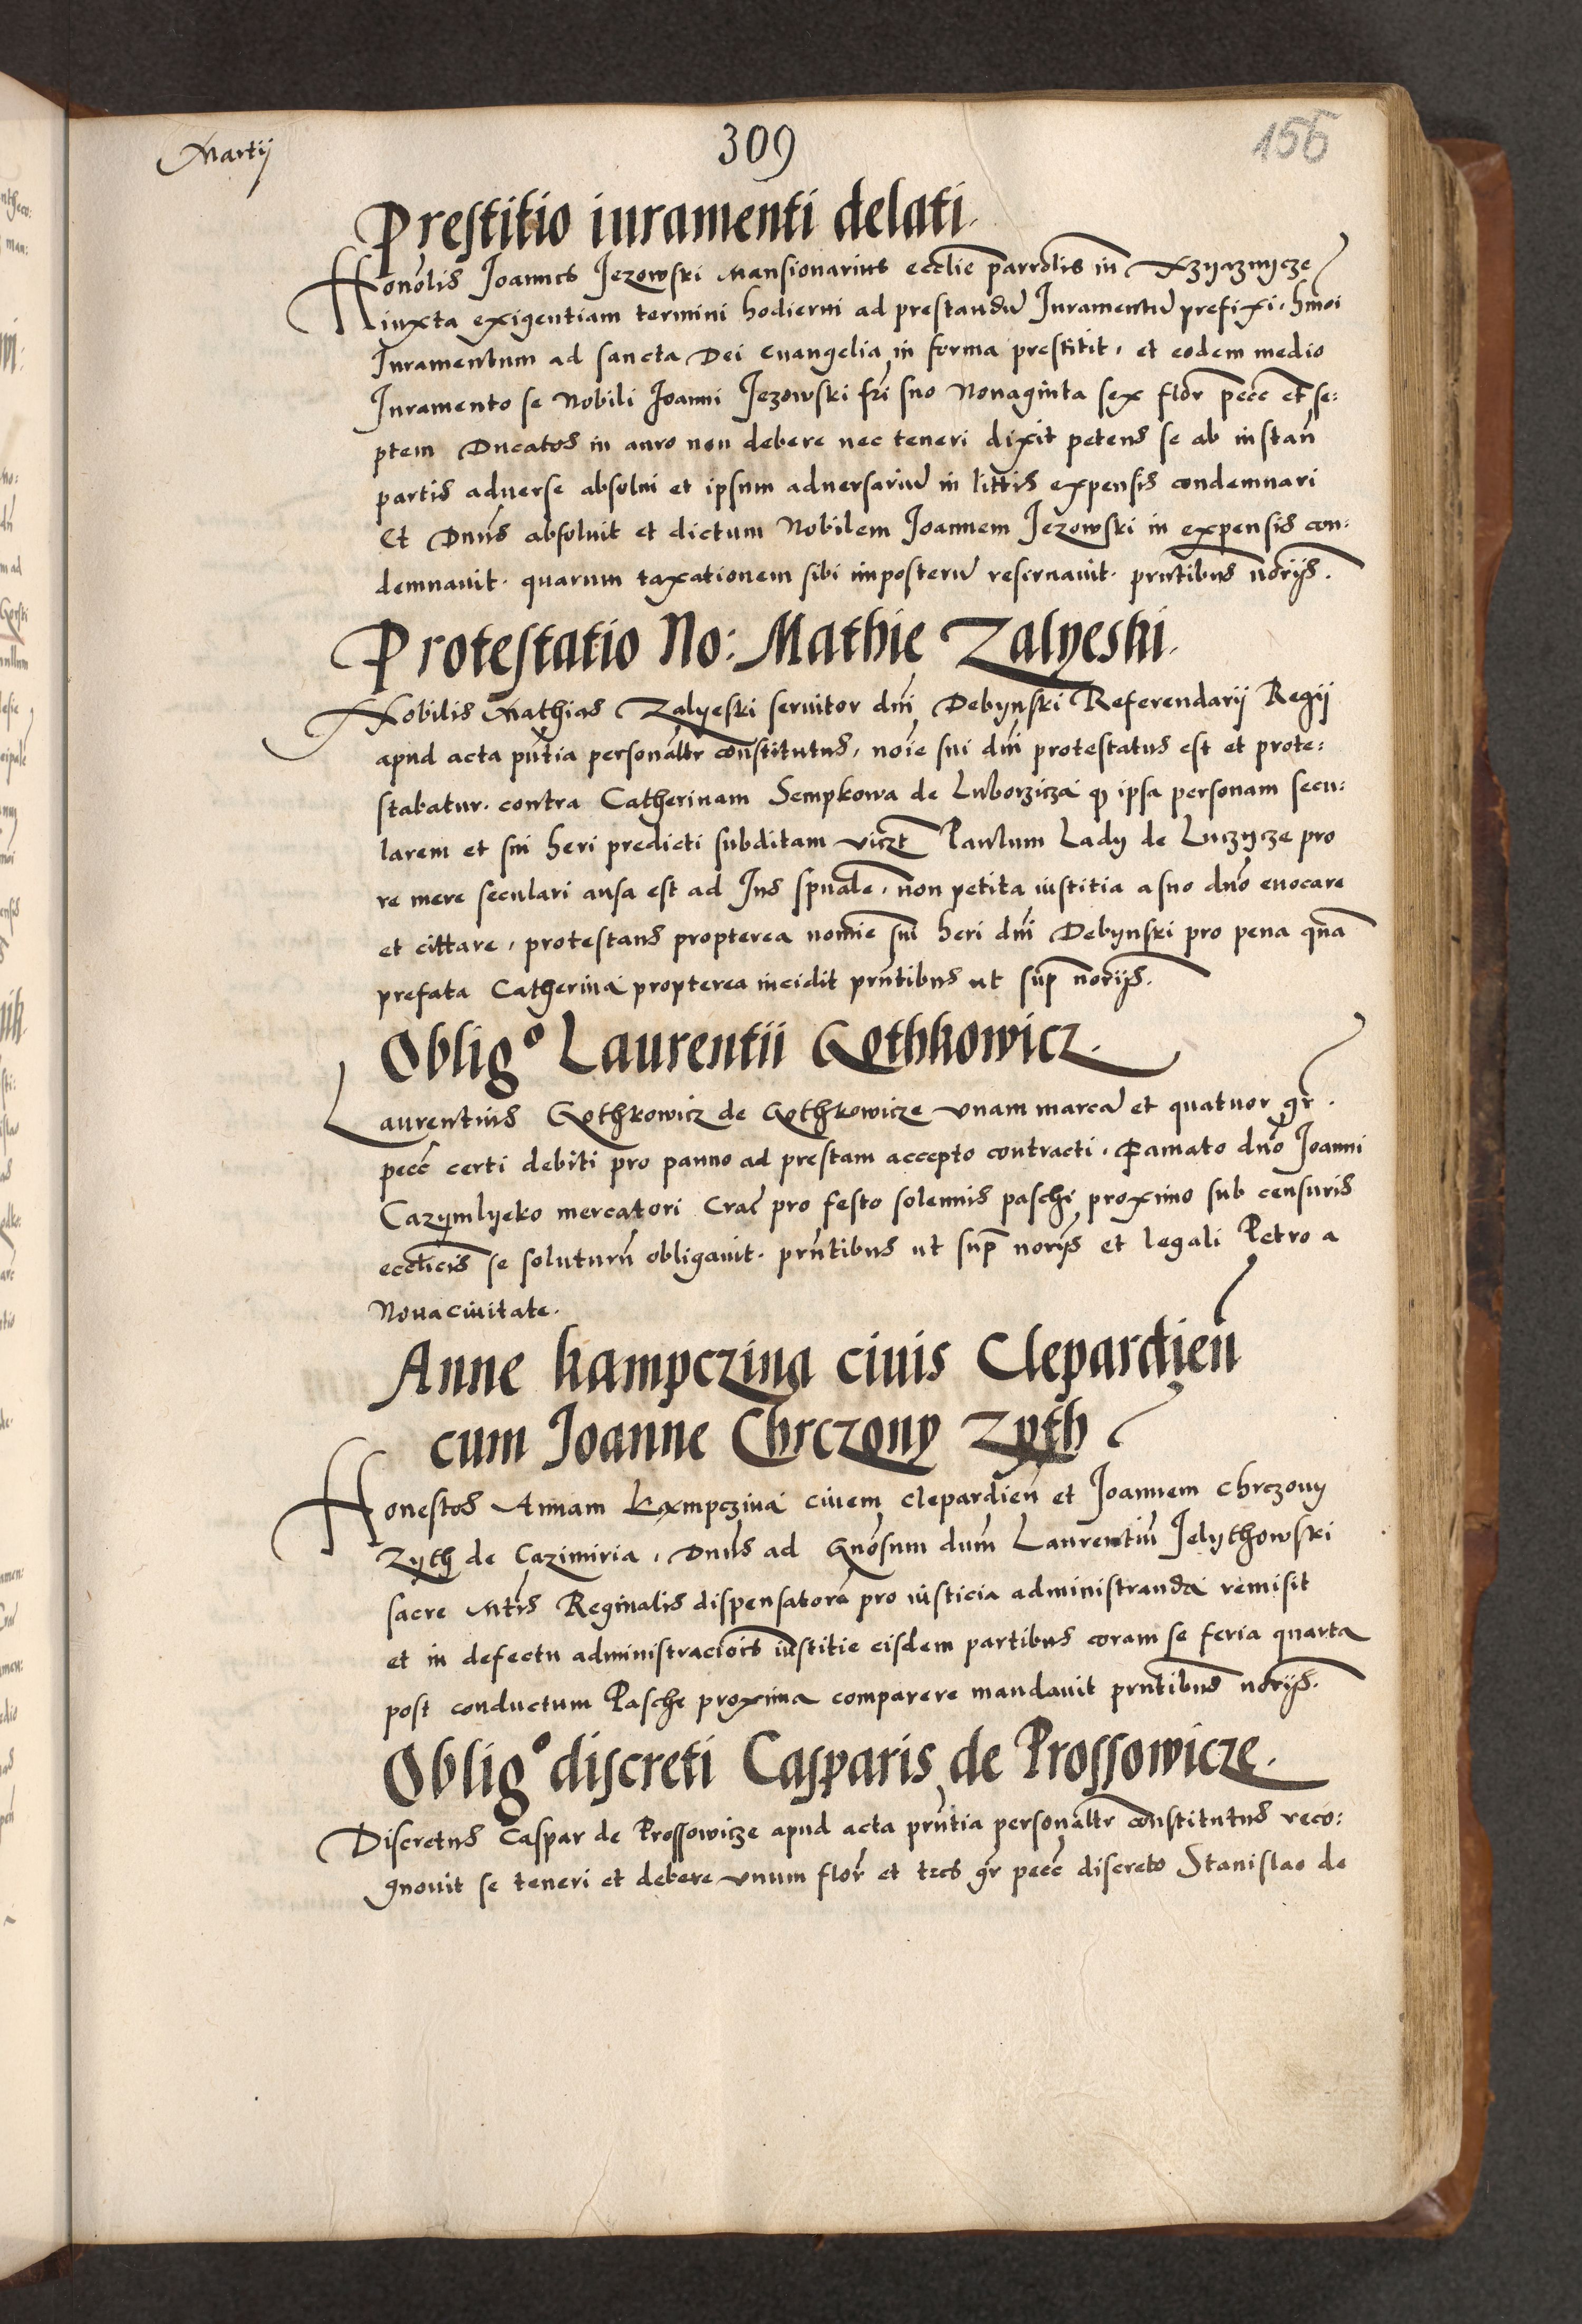 Martij
309
156
Prestitio iuramenti delati.
Honorlis Joannes Jezowski Mansionarius ecclie parrolis in Xzyaznycze
iuxta exigentiam termini hodierni ad prestandu Juramentu prefixi. hmoi
Juramentum ad sancta Dei Evangelia in forma prestitit, et eodem medio
Juramento se Nobili Joanni Jezowski fri suo Nonaginta sex flor pecc et se:
ptem Ducatos in auro non debere nec teneri dixit petens se ab instan
partis adverse absolui et ipsum adversariu in littis expensis condemnari
Et Dnus absoluit et dictum Nobilem Joannem Jezowski in expensis con:
demnavit. quarum taxationem sibi imposteru reseruauit. prntibus noriis.
Protestatio No: Mathie Zalyeski.
Nobilis Mathias Zalyeski seruitor dni Debynski Referendarij Regij
apud acta pntia personaltr constitutus, noie sui dni protestatus est et prote:
stabatur. contra Catherinam Sempkowa de Luborzicza q ipsa personam secu:
larem et sui heri predicti subditam viczt Paulum Lady de Luczycze pro
re mere seculari ausa est ad Jus spuale, non petita iustitia a suo dno euocare
et cittare, protestans propterea nomie sui heri dni Debynski pro pena qua
prefata Catherina propterea incidit prntibus ut sup noriis.
Oblig° Laurentii Gothkowicz.
Laurentius Gothkowicz de Gothkowicze unam marca et quatuor gr.
pecc certi debiti pro panno ad prestam accepto contracti. Famato dno Joanni
Cazymlyeko mercatori Crac pro festo solennis paschi proximo sub censuris
ecclicis se soluturu obligauit. prntibus ut sup noriis et legali Petro a
Noua ciuitate.
Anne kampczina ciuis Clepardien
cum Joanne Chrczony Zyth
Honestos Annam kampczina ciuem clepardien et Joannem chrczony
Zyth de Cazimiria, Dnus ad Gnosum dum Laurentiu Jelythowski
sacre Mtis Reginalis dispensatore pro iusticia administranda remisit
et in defectu administraciois iustitie eisdem partibus coram se feria quarta
post conductum Pasche proxima comparere mandauit prntibus noriis.
Oblig° discreti Casparis de Prossowicze.
Discretus Caspar de Prossowicze apud acta prntia personaltr constitutus reco:
gnouit se teneri et debere unum flor et tres gr pecc discreto Stanislao de